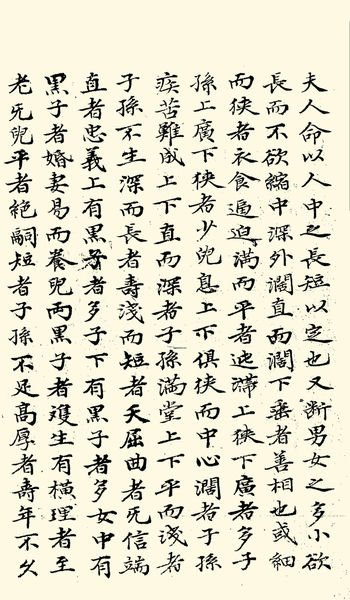 夫人命以人中之長短以定也又斷男女之多小欲
長而不欲縮中深外濶直而濶下垂者善相也或細
而狹者衣食逼迫滿而平者迍滯上狹下廣者多子
孫上廣下狹者少兒息上下俱狹而中心濶者子孫
疾苦難成上下直而深者子孫滿堂上下平而淺者
子孫不生深而長者壽淺而短者夭屈曲者旡信端
直者忠義上有黑子者多子下有黑子者多女中有
黑子者婚妻易而養兒兩黑子者䨇生有橫理者至
老旡兒平者絶嗣短者子孫不足高厚者壽年不久